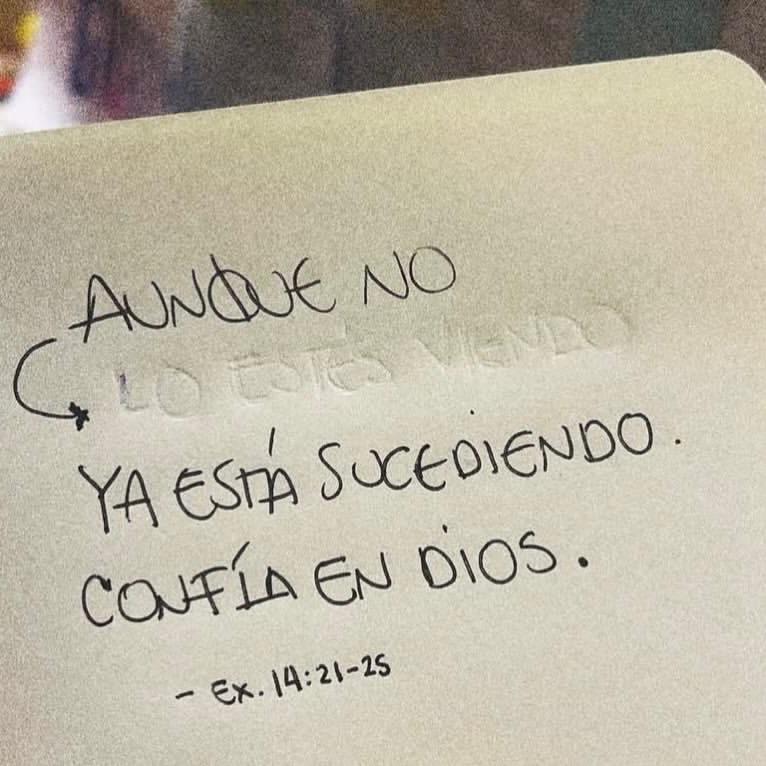 AUNQUE NO
LO ESTÉS VIENDO
YA ESTÁ SUCEDIENDO.
CONFÍA EN DIOS.
- EX. 14:21-25